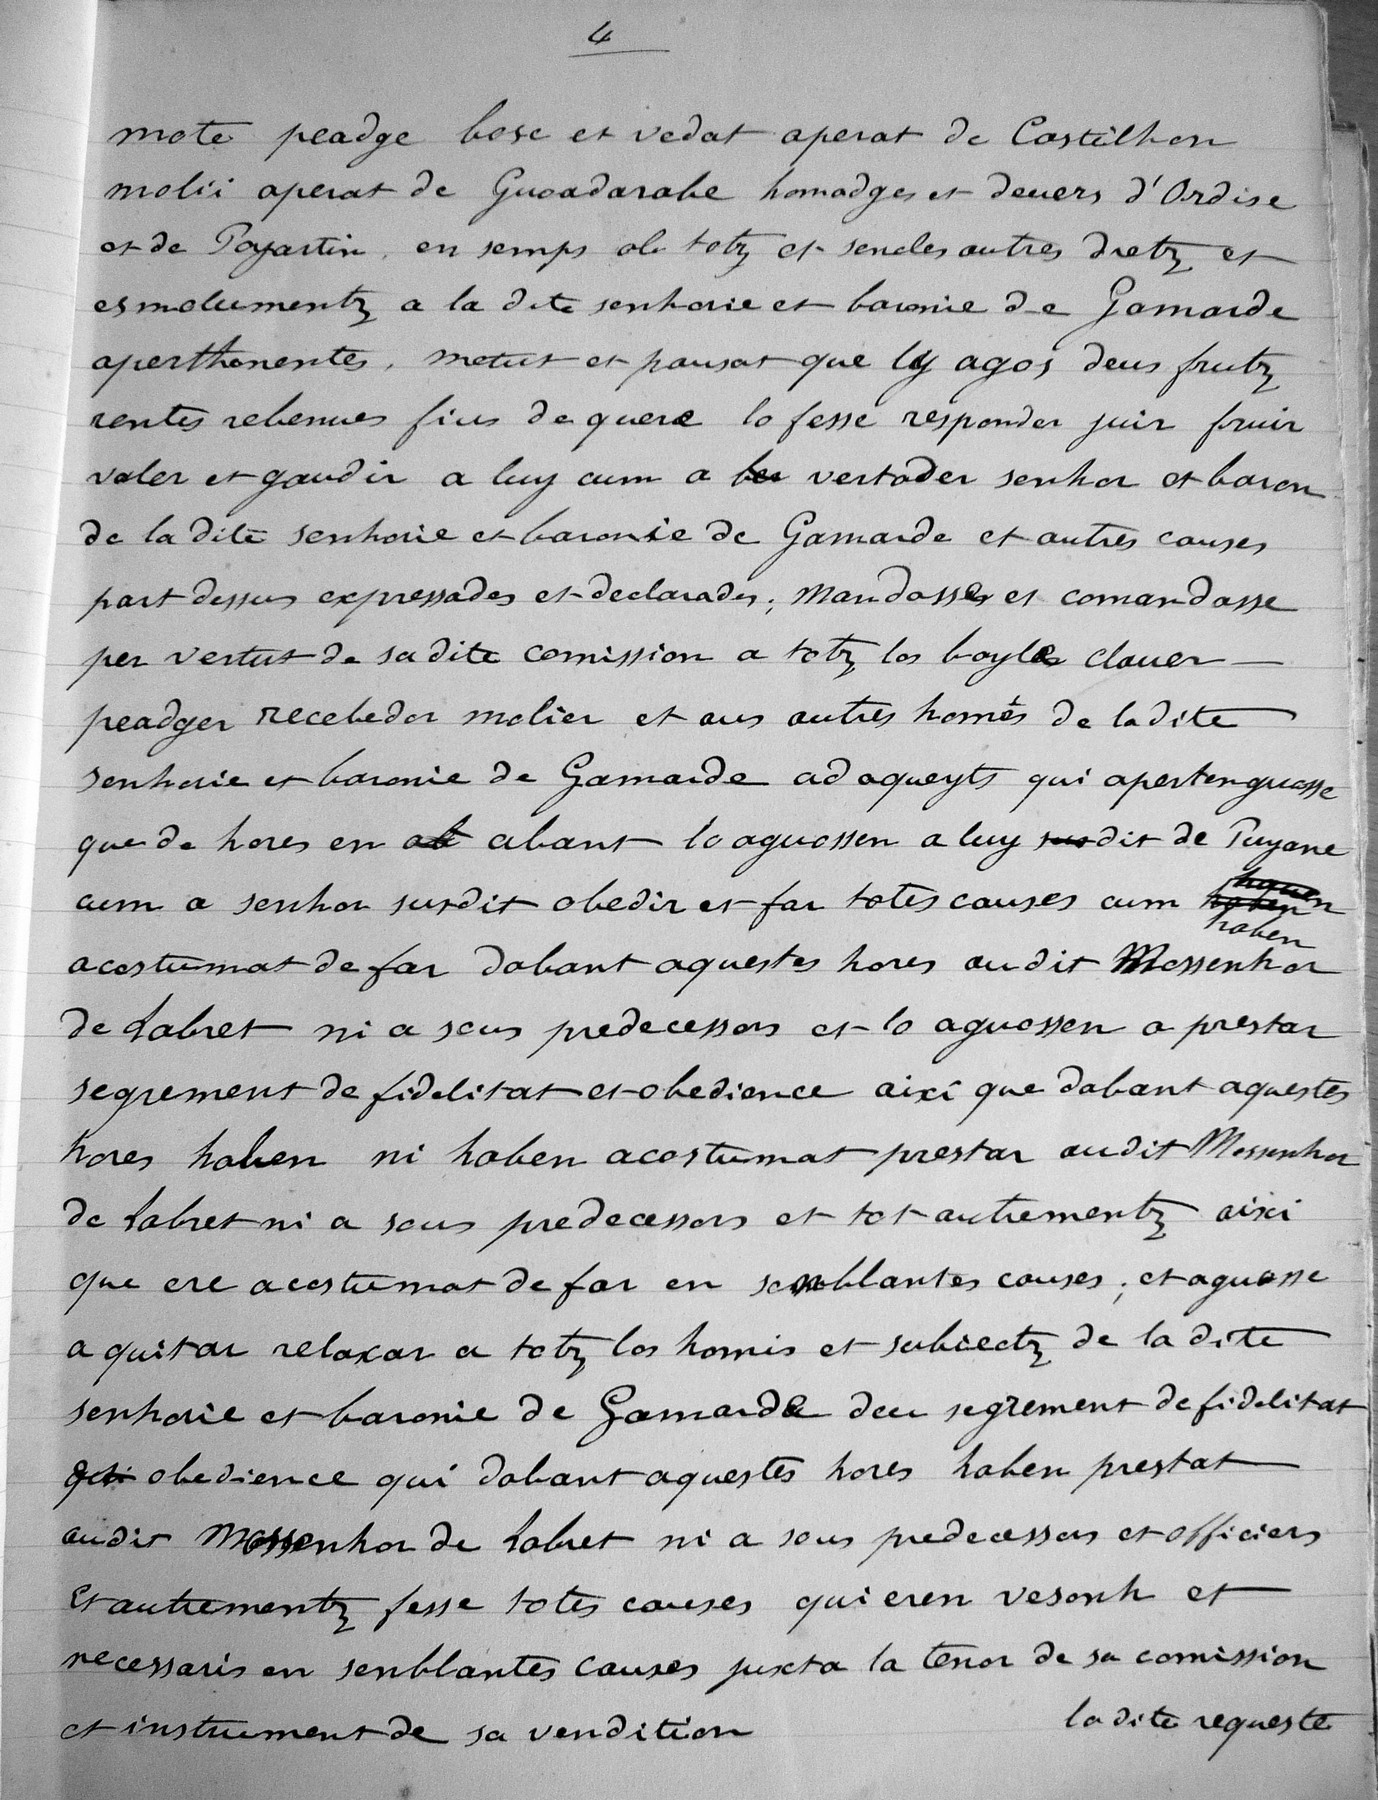 4
mote peadge bosc et vedat aperat de Castilhon
molii aperat de Gucadarabe homadges et devers d'Ordise
et de Poyartin, en semps ab totz et sencles autres dretz et
esmolumentz a la dite senhorie et baronie de Gamarde
aperthenentes, metut et pausat que ly agos deus frutz
rentes rebenues fius de quere lo fesse responder juir fruir
valer et gaudir a luy cum a vertader senhor et baron
de la dite senhorie et baronie de Gamarde et autres causes
part dessus expressades et declarades; mandasse et comandasse
per vertut de sadite comission a totz los bayles clauer
peadger recebedor molier et aus autres homés de ladite
senhorie et baronie de Gamarde ad aqueyts qui apertenguosse
que de hores en abant lo aguossen a luy dit de Puyane
cum a senhor susdit obedir et far totes causes cum haben
acostumat de far dabant aquestes hores audit Mossenhor
de Labret ni a sous predecessors et lo aguossen a prestar
segrement de fidelitat et obedience aixi que dabant aquestes
hores haben ni haben acostumat prestar audit Mossenhor
de Labret ni a sous predecessors et tot autrementz aixi
que ere acostumat de far en senblantes causes; et aguosse
a quitar relaxar a totz los homis et subiectz de la dite
senhorie et baronie de Gamarde deu segrement de fidelitat
obedience qui dabant aquestes hores haben prestat
audit Mossenhor de Labret ni a sous predecessors et officiers
Et autrementz fesse totes causes qui eren vesonh et
necessaris en senblantes causes juxta la tenor de sa comission
et instrument de sa vendition
la dite requeste